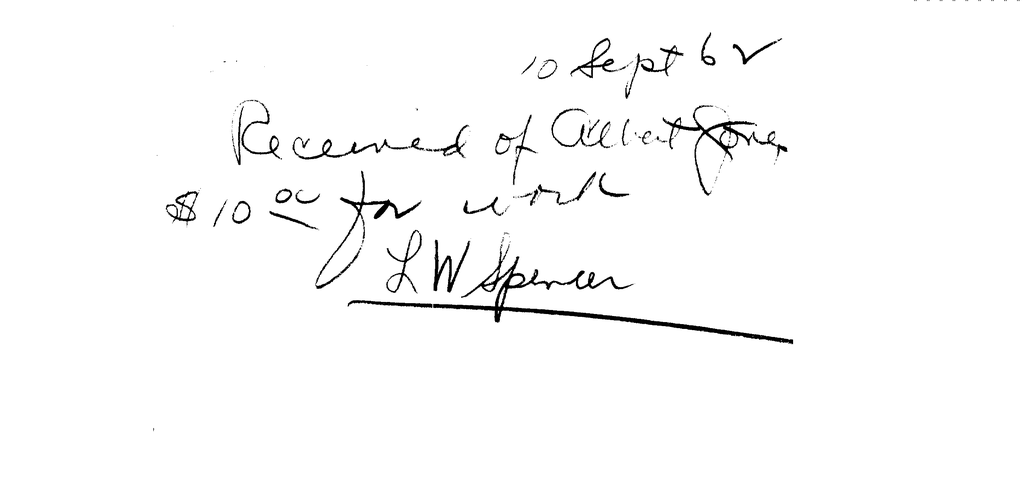 10 Sept 62
Received of Albert Jones
$10 00 for work
L W Spencer